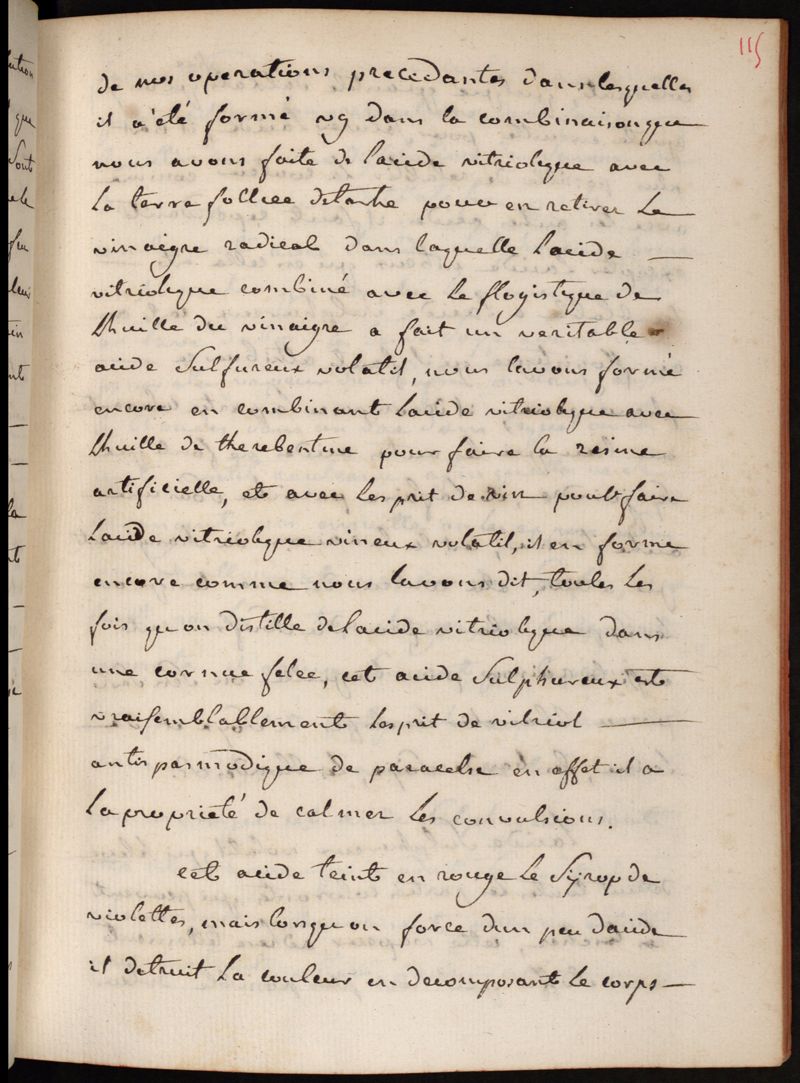 115
de nos operations precedantes dans lesquelles
il a été formé vg dans la combinaison que
nous avons faite de lacide vitriolique avec
la terre folliee detartre pour en retirer le
vinaigre radical dans laquelle lacide —
vitriolique combiné avec le flogistique de
lhuille du vinaigre a fait un veritable
acide sulfureux volatil, nous lavons formé
encore en combinant lacide vitriolique avec
lhuille de therebentine pour faire la resine
artificielle, et avec lesprit de vin pour faire
lacide vitriolique vineux volatil, il en forme
encore comme nous lavons dit, toutes les
fois quon distille delacide vitriolique dans
une cornue felee, cet acide sulphureux est
vraisemblablement lesprit de vitriol —
antispasmodique de paracelse en effet il a
la proprieté de calmer les convulsions.
cet acide teint en rouge le syrop de
violettes, mais lorsquon force dun peu dacide
il detruit la couleur en decomposant le corps —